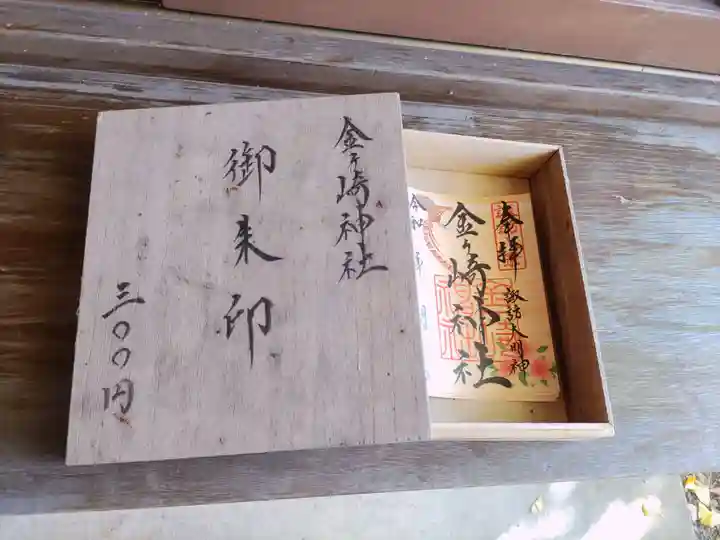 金ヶ崎神社
御朱印
三〇〇円
奉拝
諏訪大明神
金ヶ崎神社
令和
月